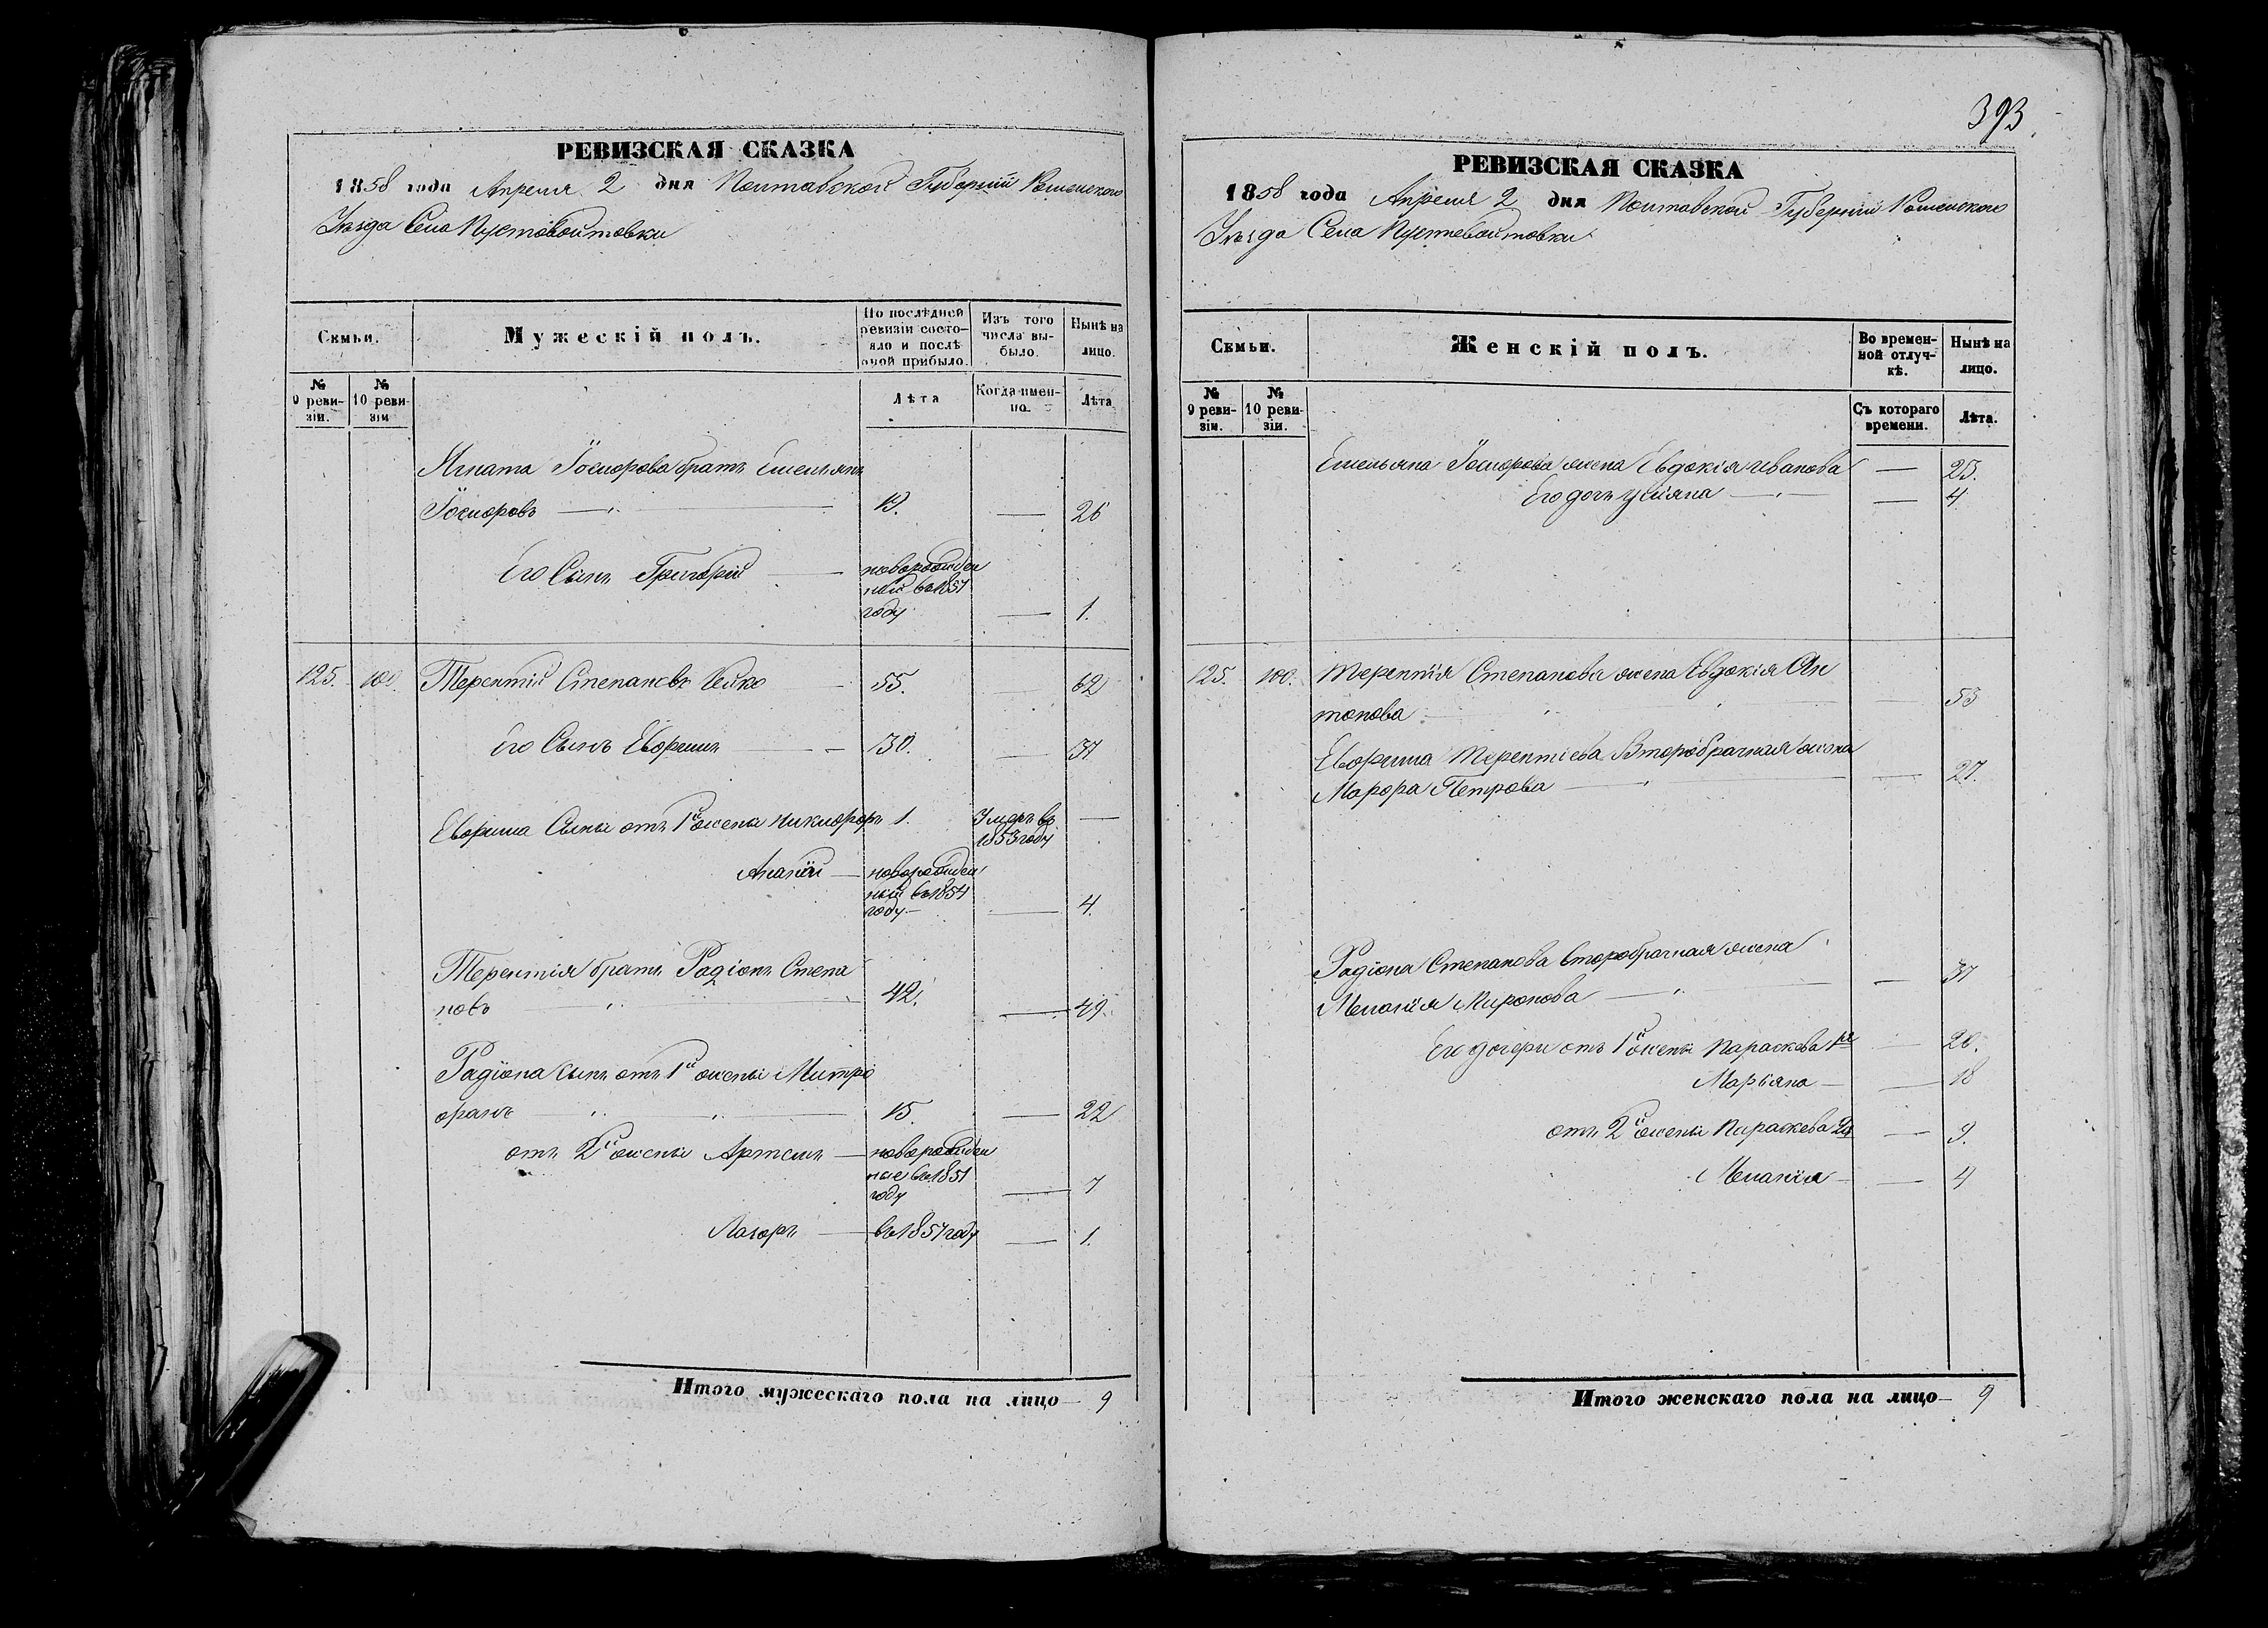 РЕВИЗСКАЯ СКАЗКА
1858 года Апреля 2 дня Полтавской Губерніи Роменского
Уѣзда Села Пустовойтовки
Семьи.
Мужескій полъ.
По послѣдней ревизіи состояло и послѣ оной прибыло.
Изъ того числа выбыло.
Нынѣ на лицо.
№ 9 ревизіи.
№ 10 ревизіи
Лѣта
Когда именно.
Лѣта
Игната Ѳедорова братъ Емельянъ
19. — 26
Его Сынъ Григорій — новорожден
ный въ 1857
году — 1.
125. 100. Терентій Степановъ 55. 62
Его Сынъ Ефримъ — 30. — 37
Ефрима Сыны отъ 1й жены Никифоръ 1. Умеръ въ —
1853 году
Ананій — новорожден
ный въ 1854
году — 4.
Терентія братъ Радіонъ Степа
новъ 42. — 49.
Радіона сынъ отъ 1й жены Митро
фанъ 15. — 22
отъ 2й жены Артемъ — новорожден
ные въ 1851
году — 7
Лазоръ — въ 1857 году — 1.
Итого мужескаго пола на лицо — 9
393
РЕВИЗСКАЯ СКАЗКА
1858 года Апреля 2 дня Полтавской Губерніи Роменского
Уѣзда Села Пустовойтовки
Семьи.
Женскій полъ.
Во временной отлучкѣ.
Нынѣ на лицо.
№ 9 ревизіи.
№ 10 ревизіи.
Съ котораго времени.
Лѣта.
Емельяна жена Евдокія Иванова — 25.
Его дочь Уліяна — 4
125. 100. Терентія Степанова жена Евдокія Ан
тонова — 53
Ефрима Терентіева Второбрачная жена
Марфа Петрова — 27.
Радіона Степанова второбрачная жена
Меланія Миронова — 37
Его дочери отъ 1й жены Параскева 1я — 20.
Маріяна — — 18
отъ 2й жены Параскева 2я — 9.
Меланія — — 4
Итого женскаго пола на лицо — 9